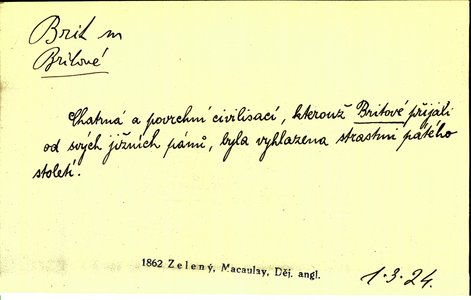 Brit m
Britové
Chatrná a povrchní civilisací, kterouž Britové přijali
od svých jižních pánů, byla vyhlazena strastmi pátého
století.
1862 Zelený, Macaulay, Děj. angl.
1·3·24.